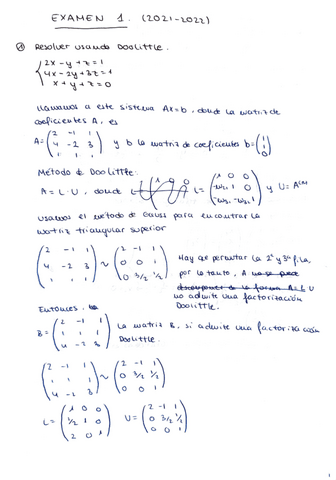 EXAMEN 1. (2021-2022)
① Resolver usando Doolittle.
2x - y + z = 1
4x - 2y + 3z = 1
x + y + z = 0
llamamos a este sistema Ax=b, donde la matriz de
coeficientes A, es
A = (2 -1 1; 4 -2 3; 1 1 1) y b la matriz de coeficientes b = (1; 1; 0)
Método de Doolittle:
A = L·U, donde L = (1 0 0; 1 0; 1) y U = A
usamos el método de Gauss para encontrar la
matriz triangular superior
(2 -1 1; 4 -2 3; 1 1 1) ~ (2 -1 1; 0 0 1; 0 3/2 1/2)
Hay que permutar la 2ª y 3ª fila,
por lo tanto, A no se puede
descomponer de la forma A = L·U
no admite una factorización
Doolittle.
Entonces,
B = (2 -1 1; 1 1 1; 4 -2 3) La matriz B, si admite una factorización
Doolittle.
(2 -1 1; 1 1 1; 4 -2 3) ~ (2 -1 1; 0 3/2 1/2; 0 0 1)
L = (1 0 0; 1/2 1 0; 2 0 1) U = (2 -1 1; 0 3/2 1/2; 0 0 1)